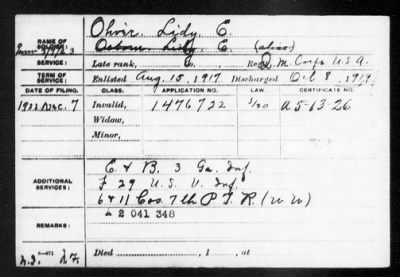 Oliver, Lidy E.
NAME OF SOLDIER:
Osborn, Lidy E. (alias)
Late rank, Reg. M. Corps U.S.A.
TERM OF SERVICE:
Enlisted Aug. 15, 1917 Discharged Oct 8, 1919
DATE OF FILING. CLASS. APPLICATION NO. LAW. CERTIFICATE NO.
1922 Dec. 7 Invalid, 1476722 A 5-13-26
Widow,
Minor,
ADDITIONAL SERVICES:
E & B. 3 Ga. Inf.
F 29 U.S. V. Inf.
6 & 11 Cos. 7th P. T. R. (W W)
REMARKS:
A 2 041 348
Died , 1 , at